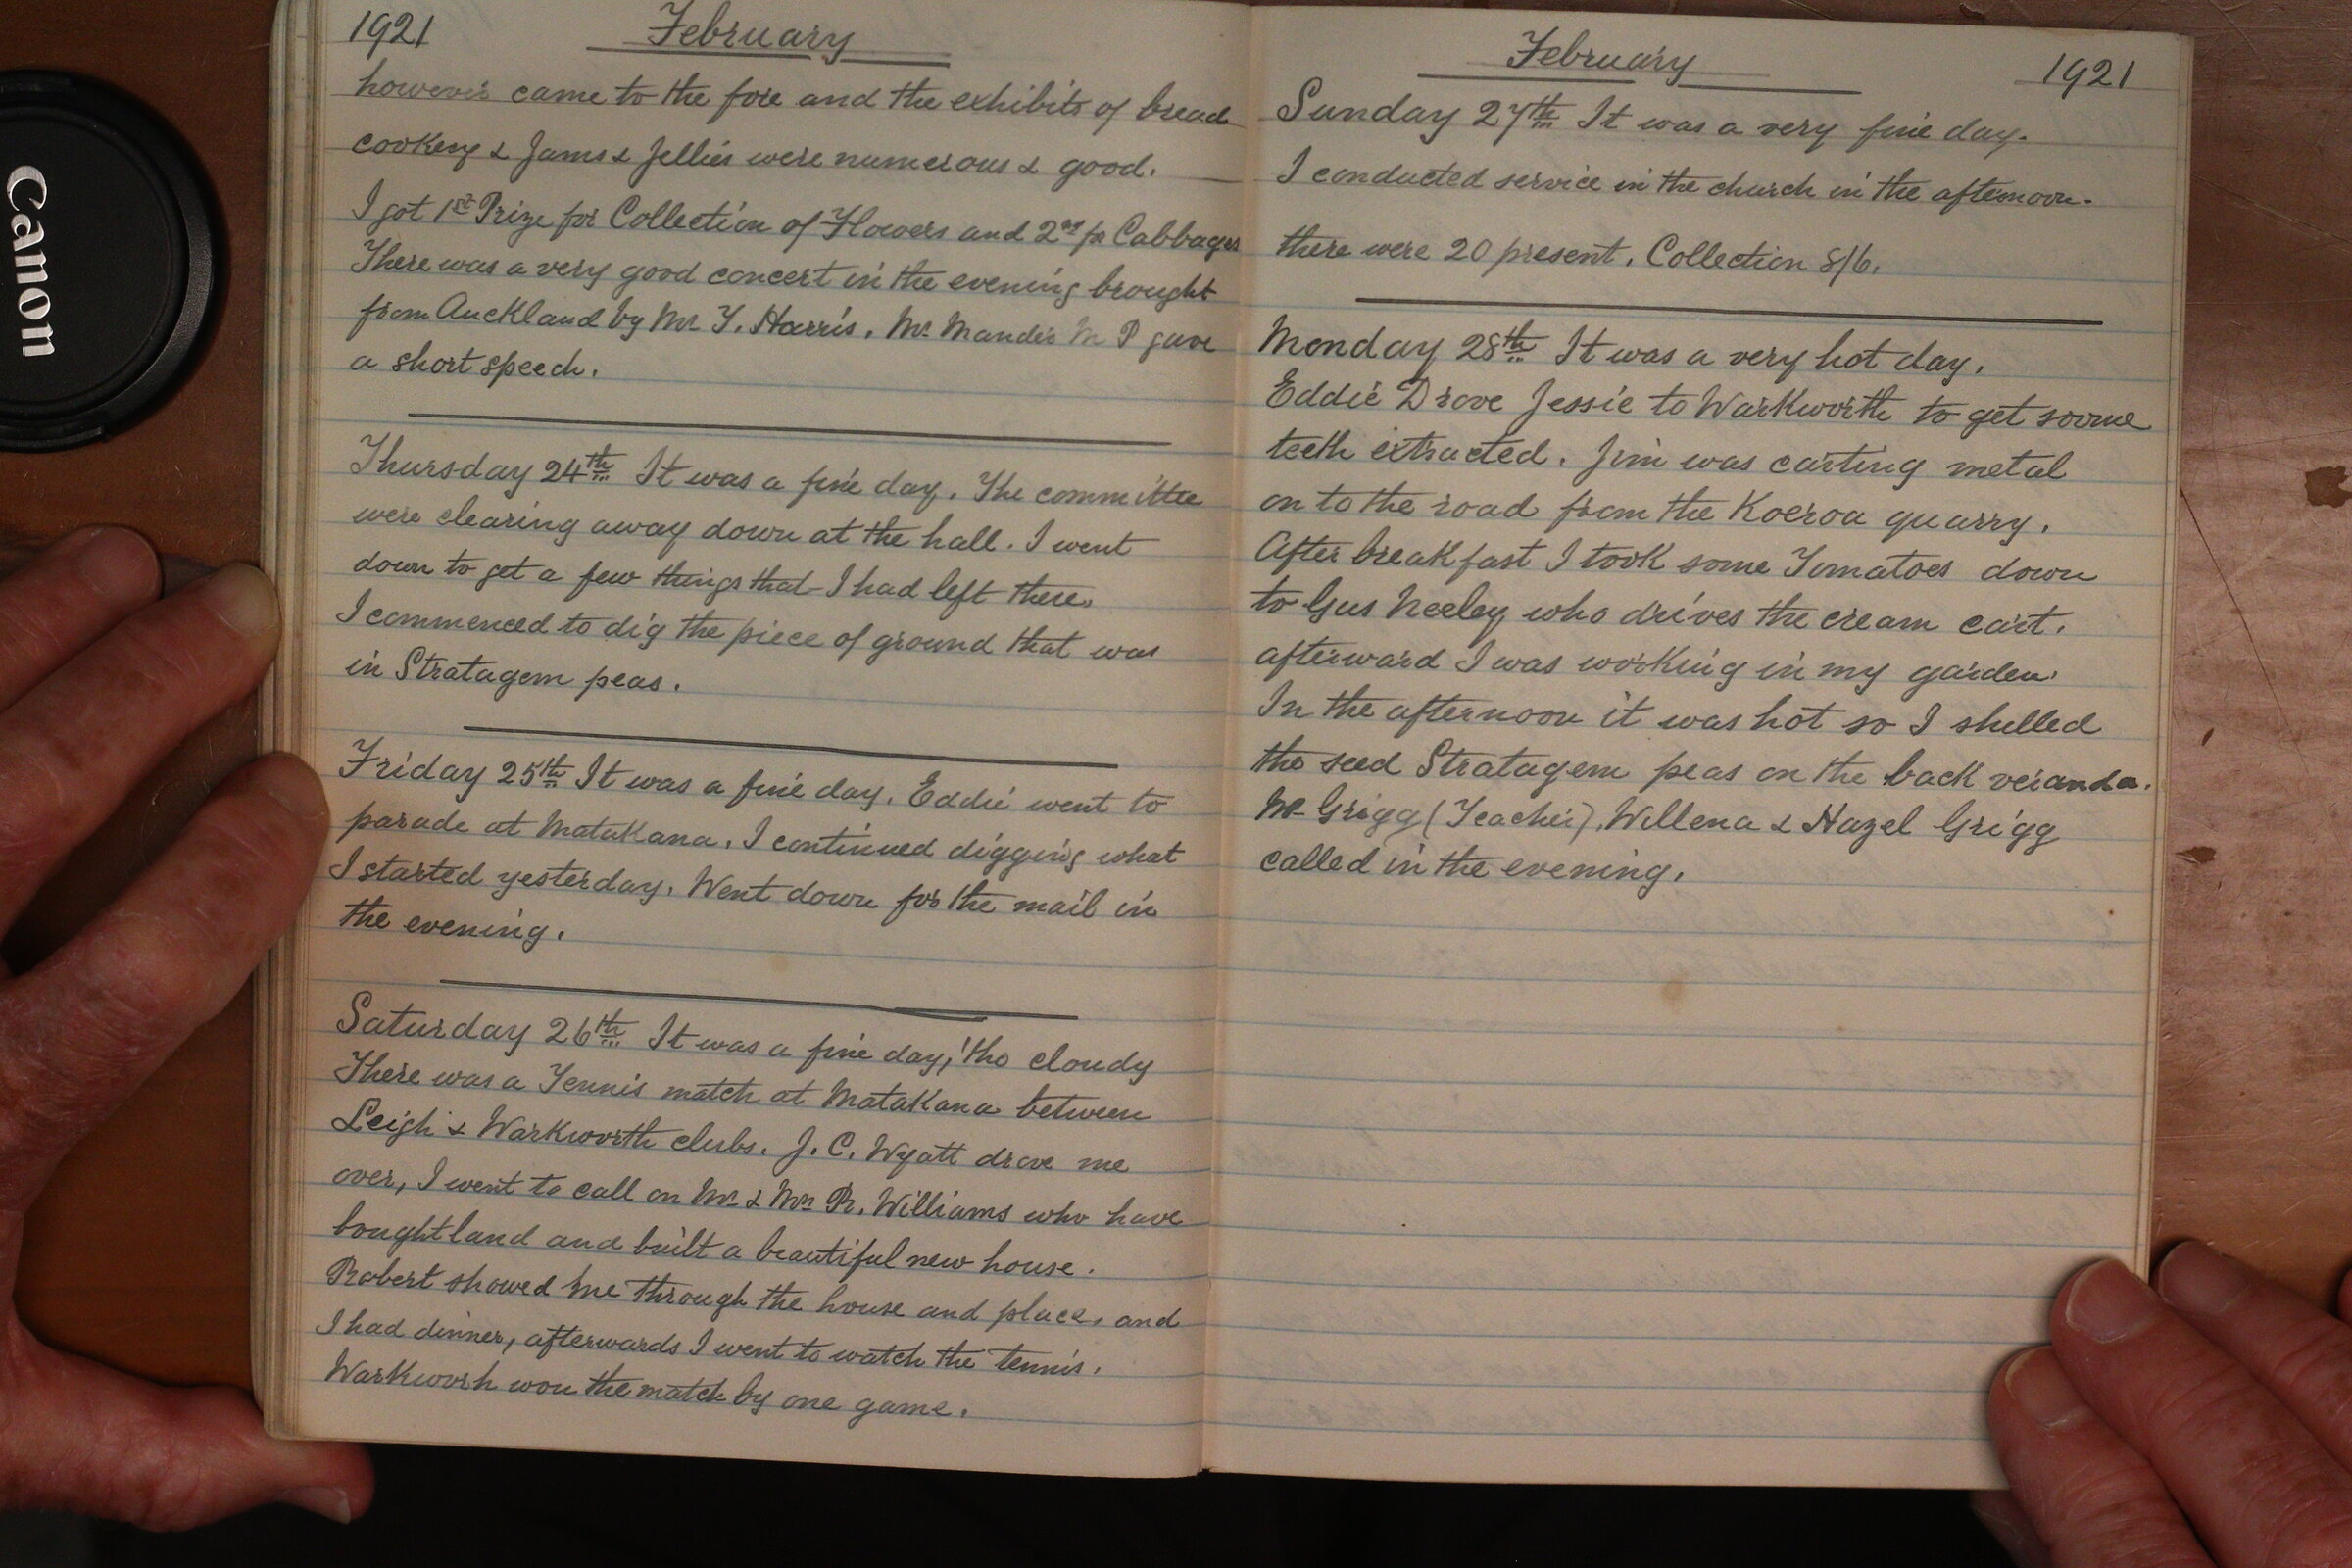 Canon
1921 February
however came to the fore and the exhibits of bread
cookery & Jams & Jellies were numerous & good.
I got 1st Prize for Collection of Flowers and 2nd for Cabbages
There was a very good concert in the evening brought
from Auckland by Mr T. Harris. Mr Mander M P gave
a short speech.
Thursday 24th It was a fine day. The committee
were clearing away down at the hall. I went
down to get a few things that I had left there.
I commenced to dig the piece of ground that was
in Stratagem peas.
Friday 25th It was a fine day. Eddie went to
parade at Matakana. I continued digging what
I started yesterday. Went down for the mail in
the evening.
Saturday 26th It was a fine day, 'tho cloudy
There was a Tennis match at Matakana between
Leigh & Warkworth clubs. J. C. Wyatt drove me
over, I went to call on Mr & Mrs R. Williams who have
bought land and built a beautiful new house.
Robert showed me through the house and place, and
I had dinner, afterwards I went to watch the tennis.
Warkworh won the match by one game.
February 1921
Sunday 27th It was a very fine day.
I conducted service in the church in the afternoon.
there were 20 present. Collection 8/6.
Monday 28th It was a very hot day.
Eddie Drove Jessie to Warkworth to get soome
teeth extracted. Jim was carting metal
on to the road from the Koeroa quarry.
After breakfast I took some Tomatoes down
to Gus Neeley who drives the cream cart.
afterward I was working in my garden.
In the afternoon it was hot so I shelled
the seed Stratagem peas on the back veranda.
Mr Grigg (Teacher), Willena & Hazel Grigg
called in the evening.